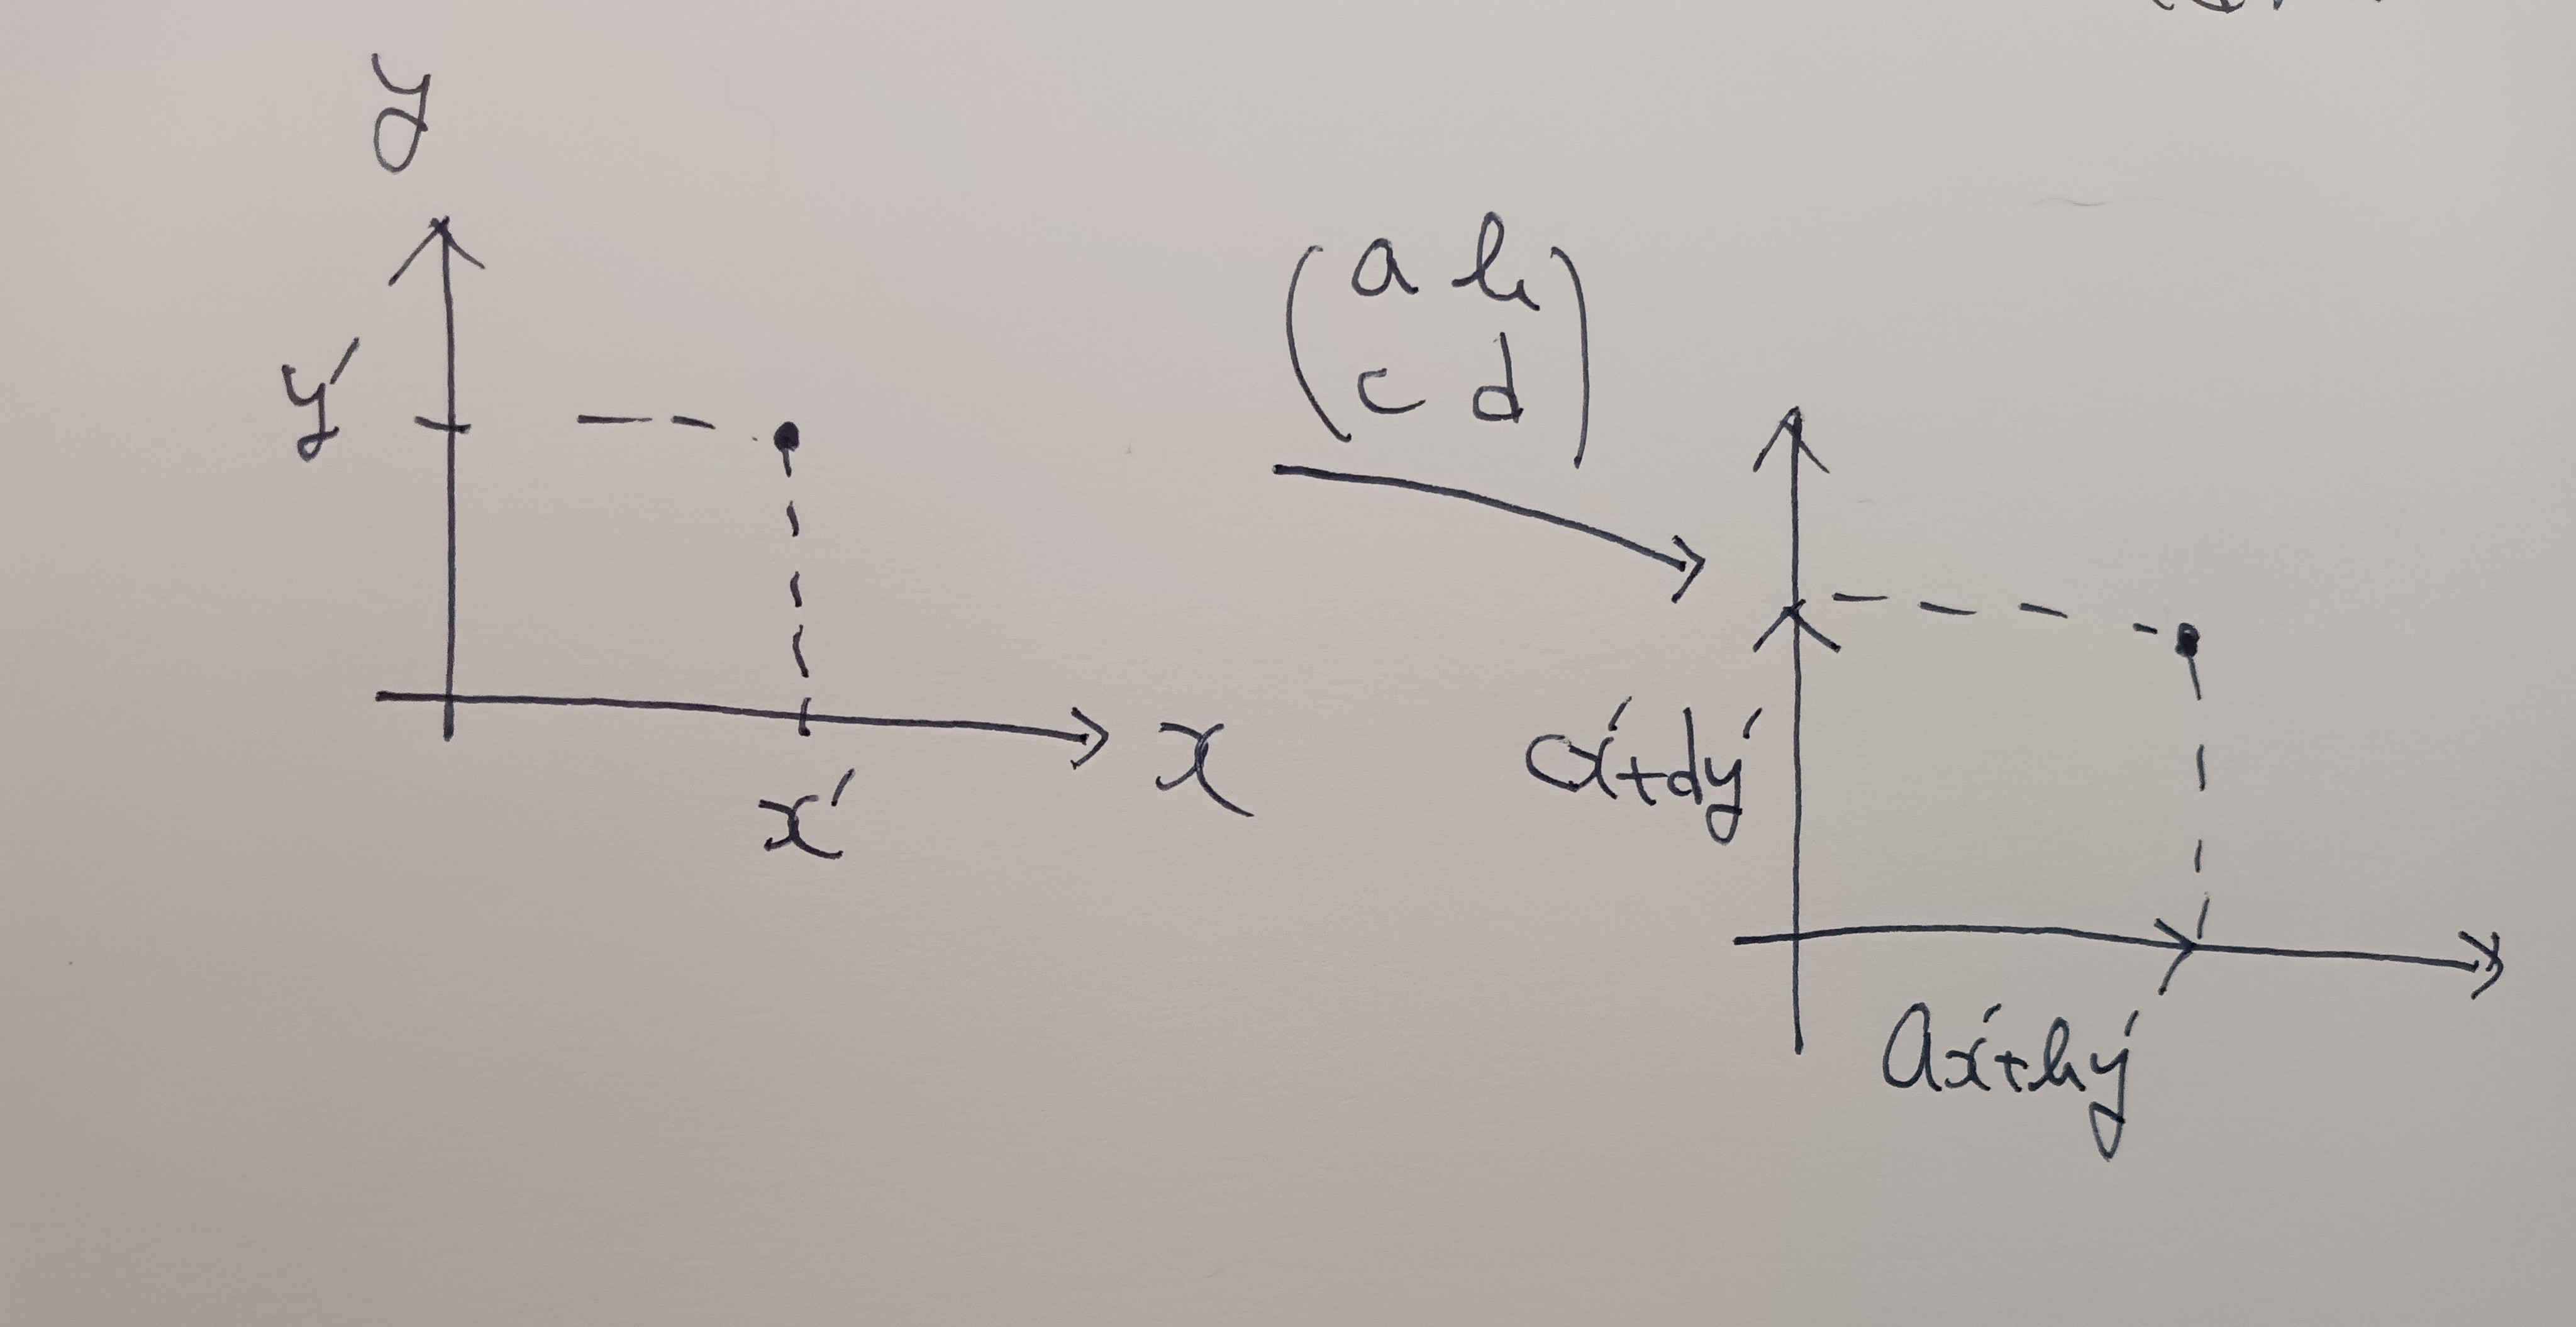 y
y′
x
x′
(a b
c d)
cx′+dy′
ax′+by′